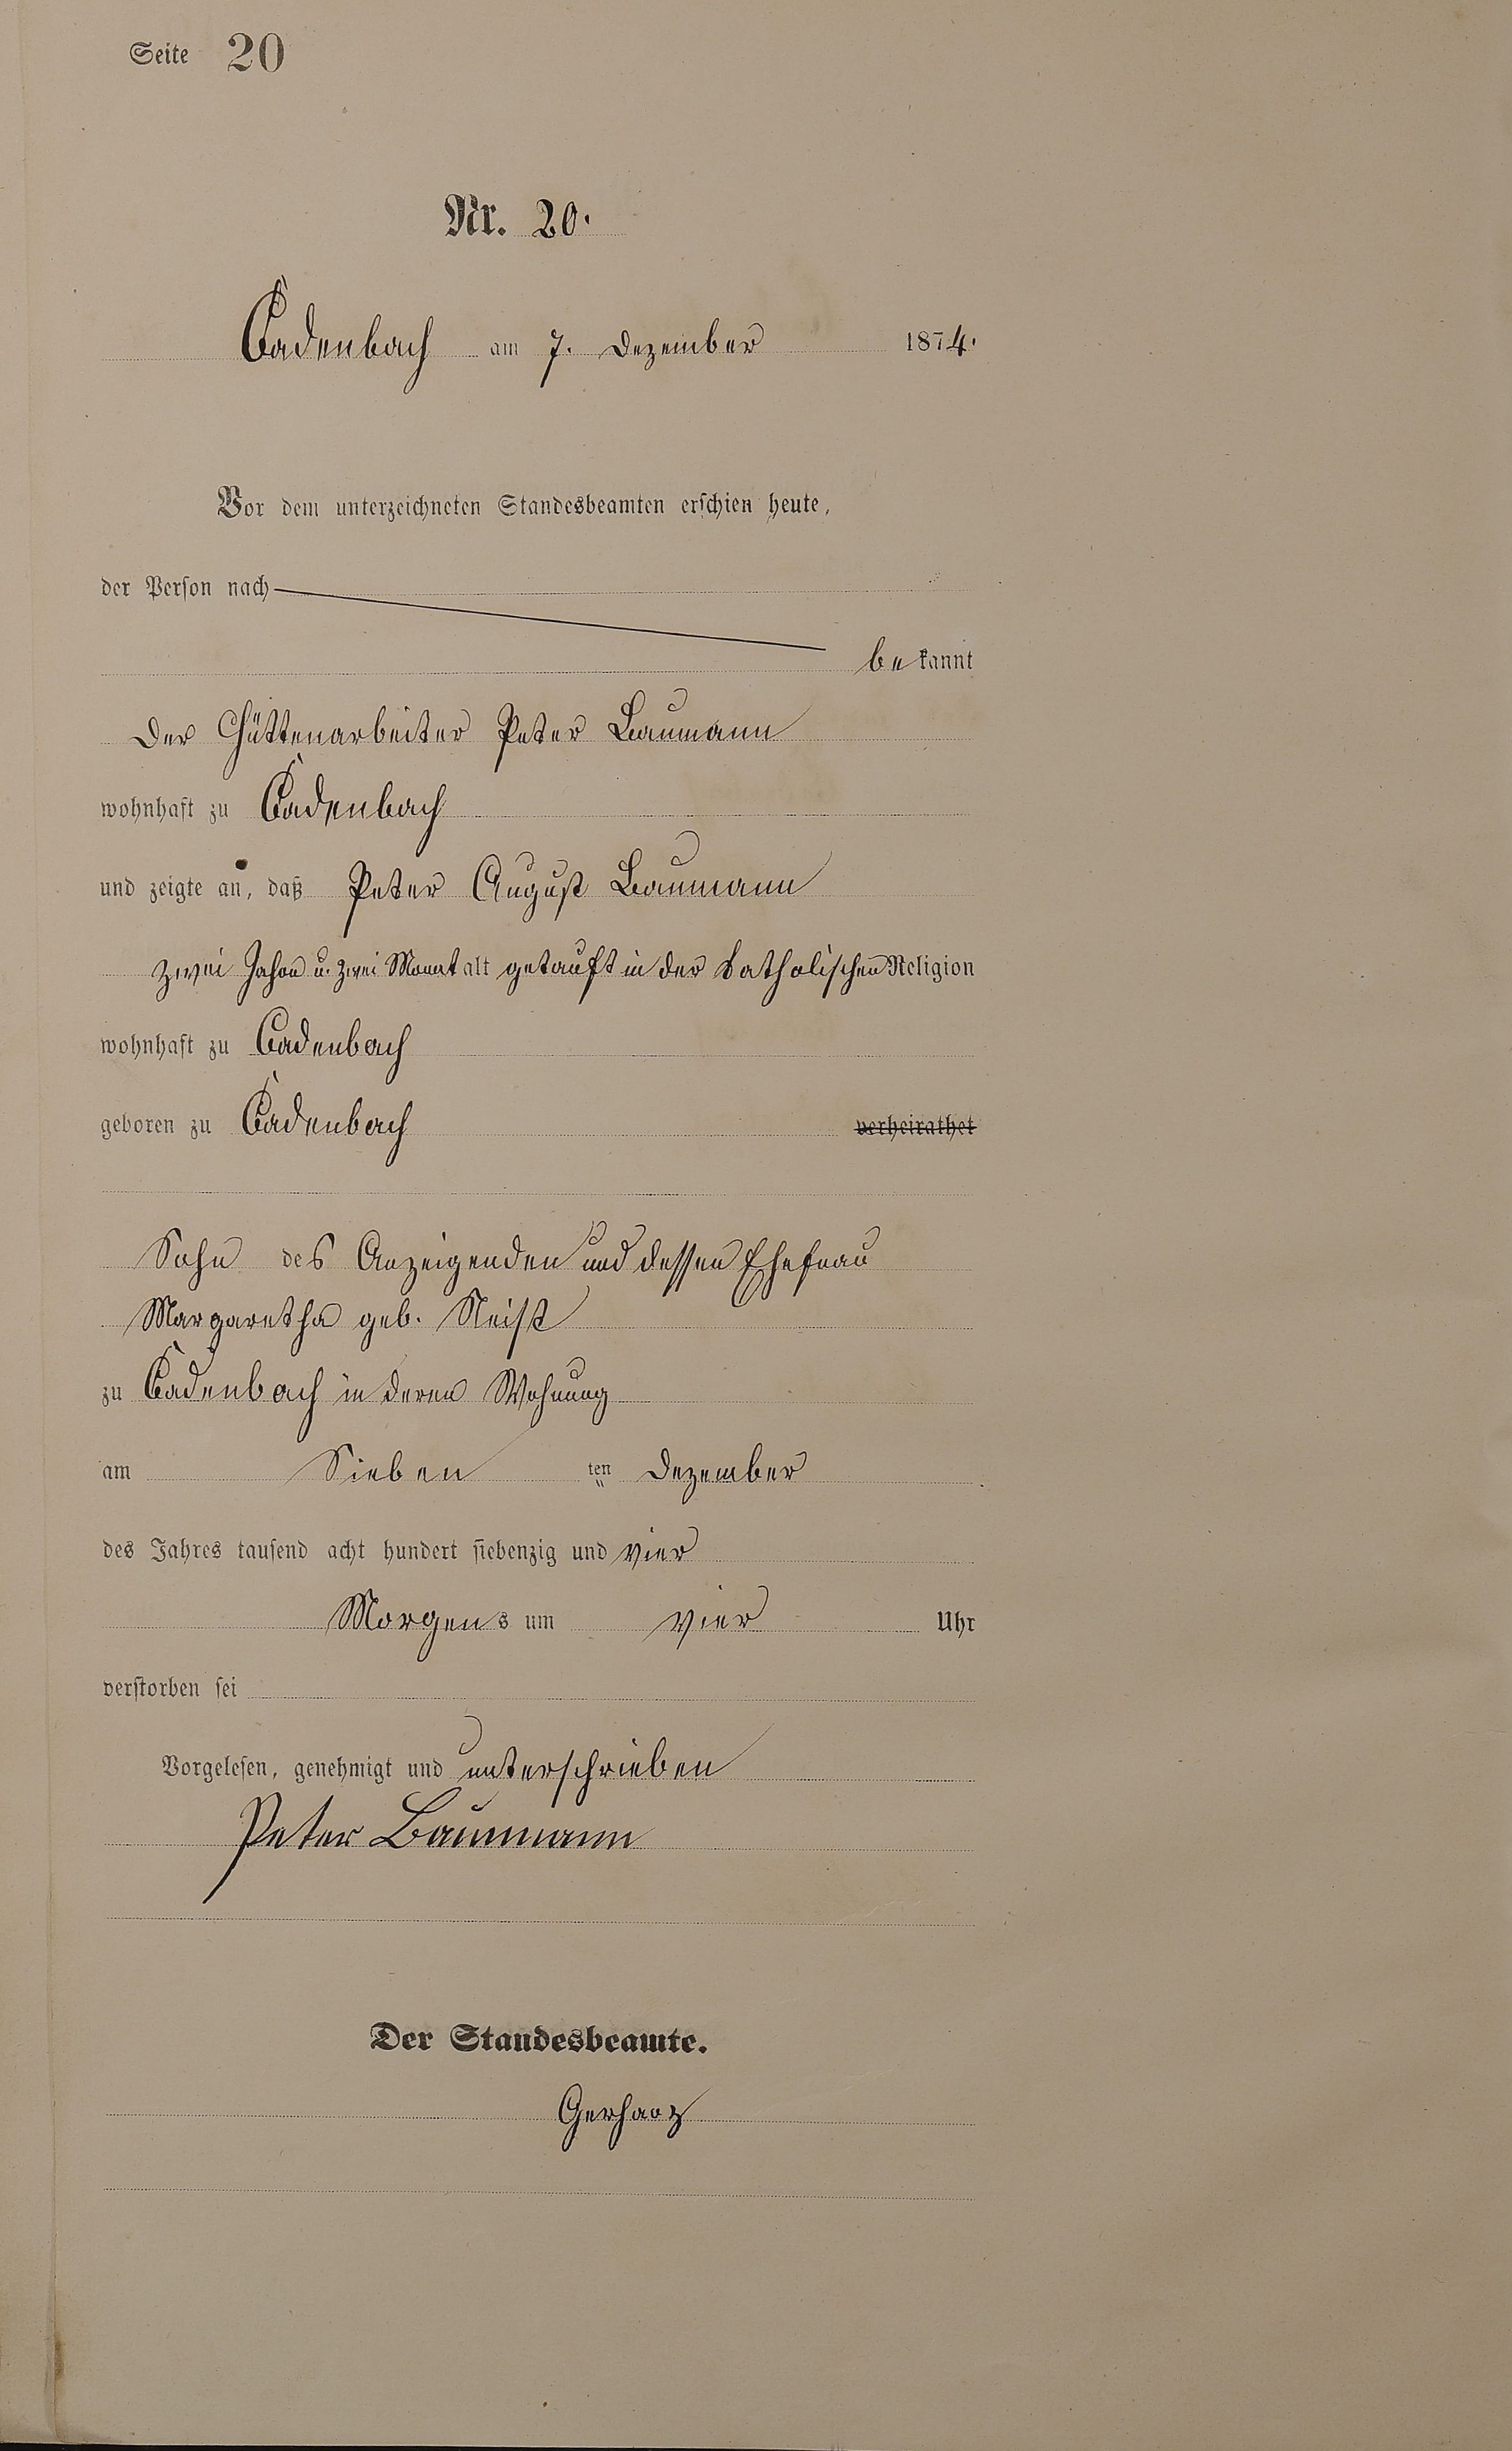 Seite 20
Nr. 20.
Cadenbach am 7. Dezember 1874.
Vor dem unterzeichneten Standesbeamten erschien heute,
der Person nach
bekannt
der Hüttenarbeiter Peter Baumann
wohnhaft zu Cadenbach
und zeigte an, daß Peter August Baumann
zwei Jahre u. zwei Monat alt getauft in der katholischen Religion
wohnhaft zu Cadenbach
geboren zu Cadenbach verheirathet
Sohn des Anzeigenden und dessen Ehefrau
Margaretha geb.
zu Cadenbach in deren Wohnung
am Sieben ten Dezember
des Jahres tausend acht hundert siebenzig und vier
Morgens um vier Uhr
verstorben sei
Vorgelesen, genehmigt und unterschrieben
Peter Baumann
Der Standesbeamte.
Gerharz